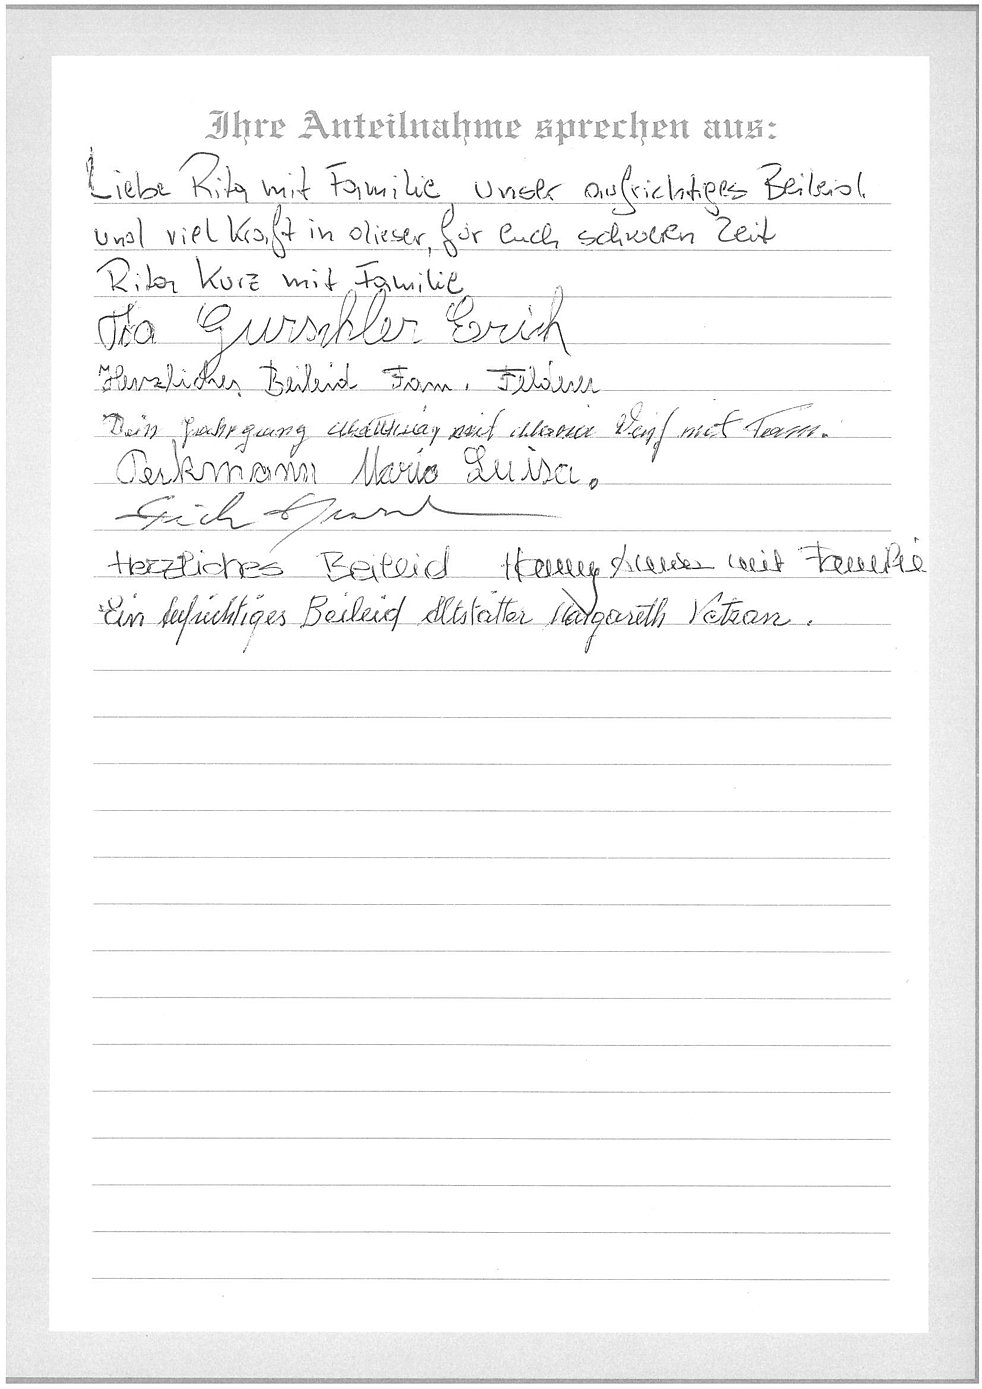 Ihre Anteilnahme sprechen aus:
Liebe Rita mit Familie, unser aufrichtiges Beileid
und viel Kraft in dieser, für euch schweren Zeit
Rita Kurz mit Familie
Gurschler Erich
Herzliches Beileid Fam.
Dein Jahrgang mit Maria mit Team.
Perkmann Maria Luisa.
Erich
Herzliches Beileid Hanny mit Familie
Ein Aufrichtiges Beileid Altstätter Margareth Vetzan.